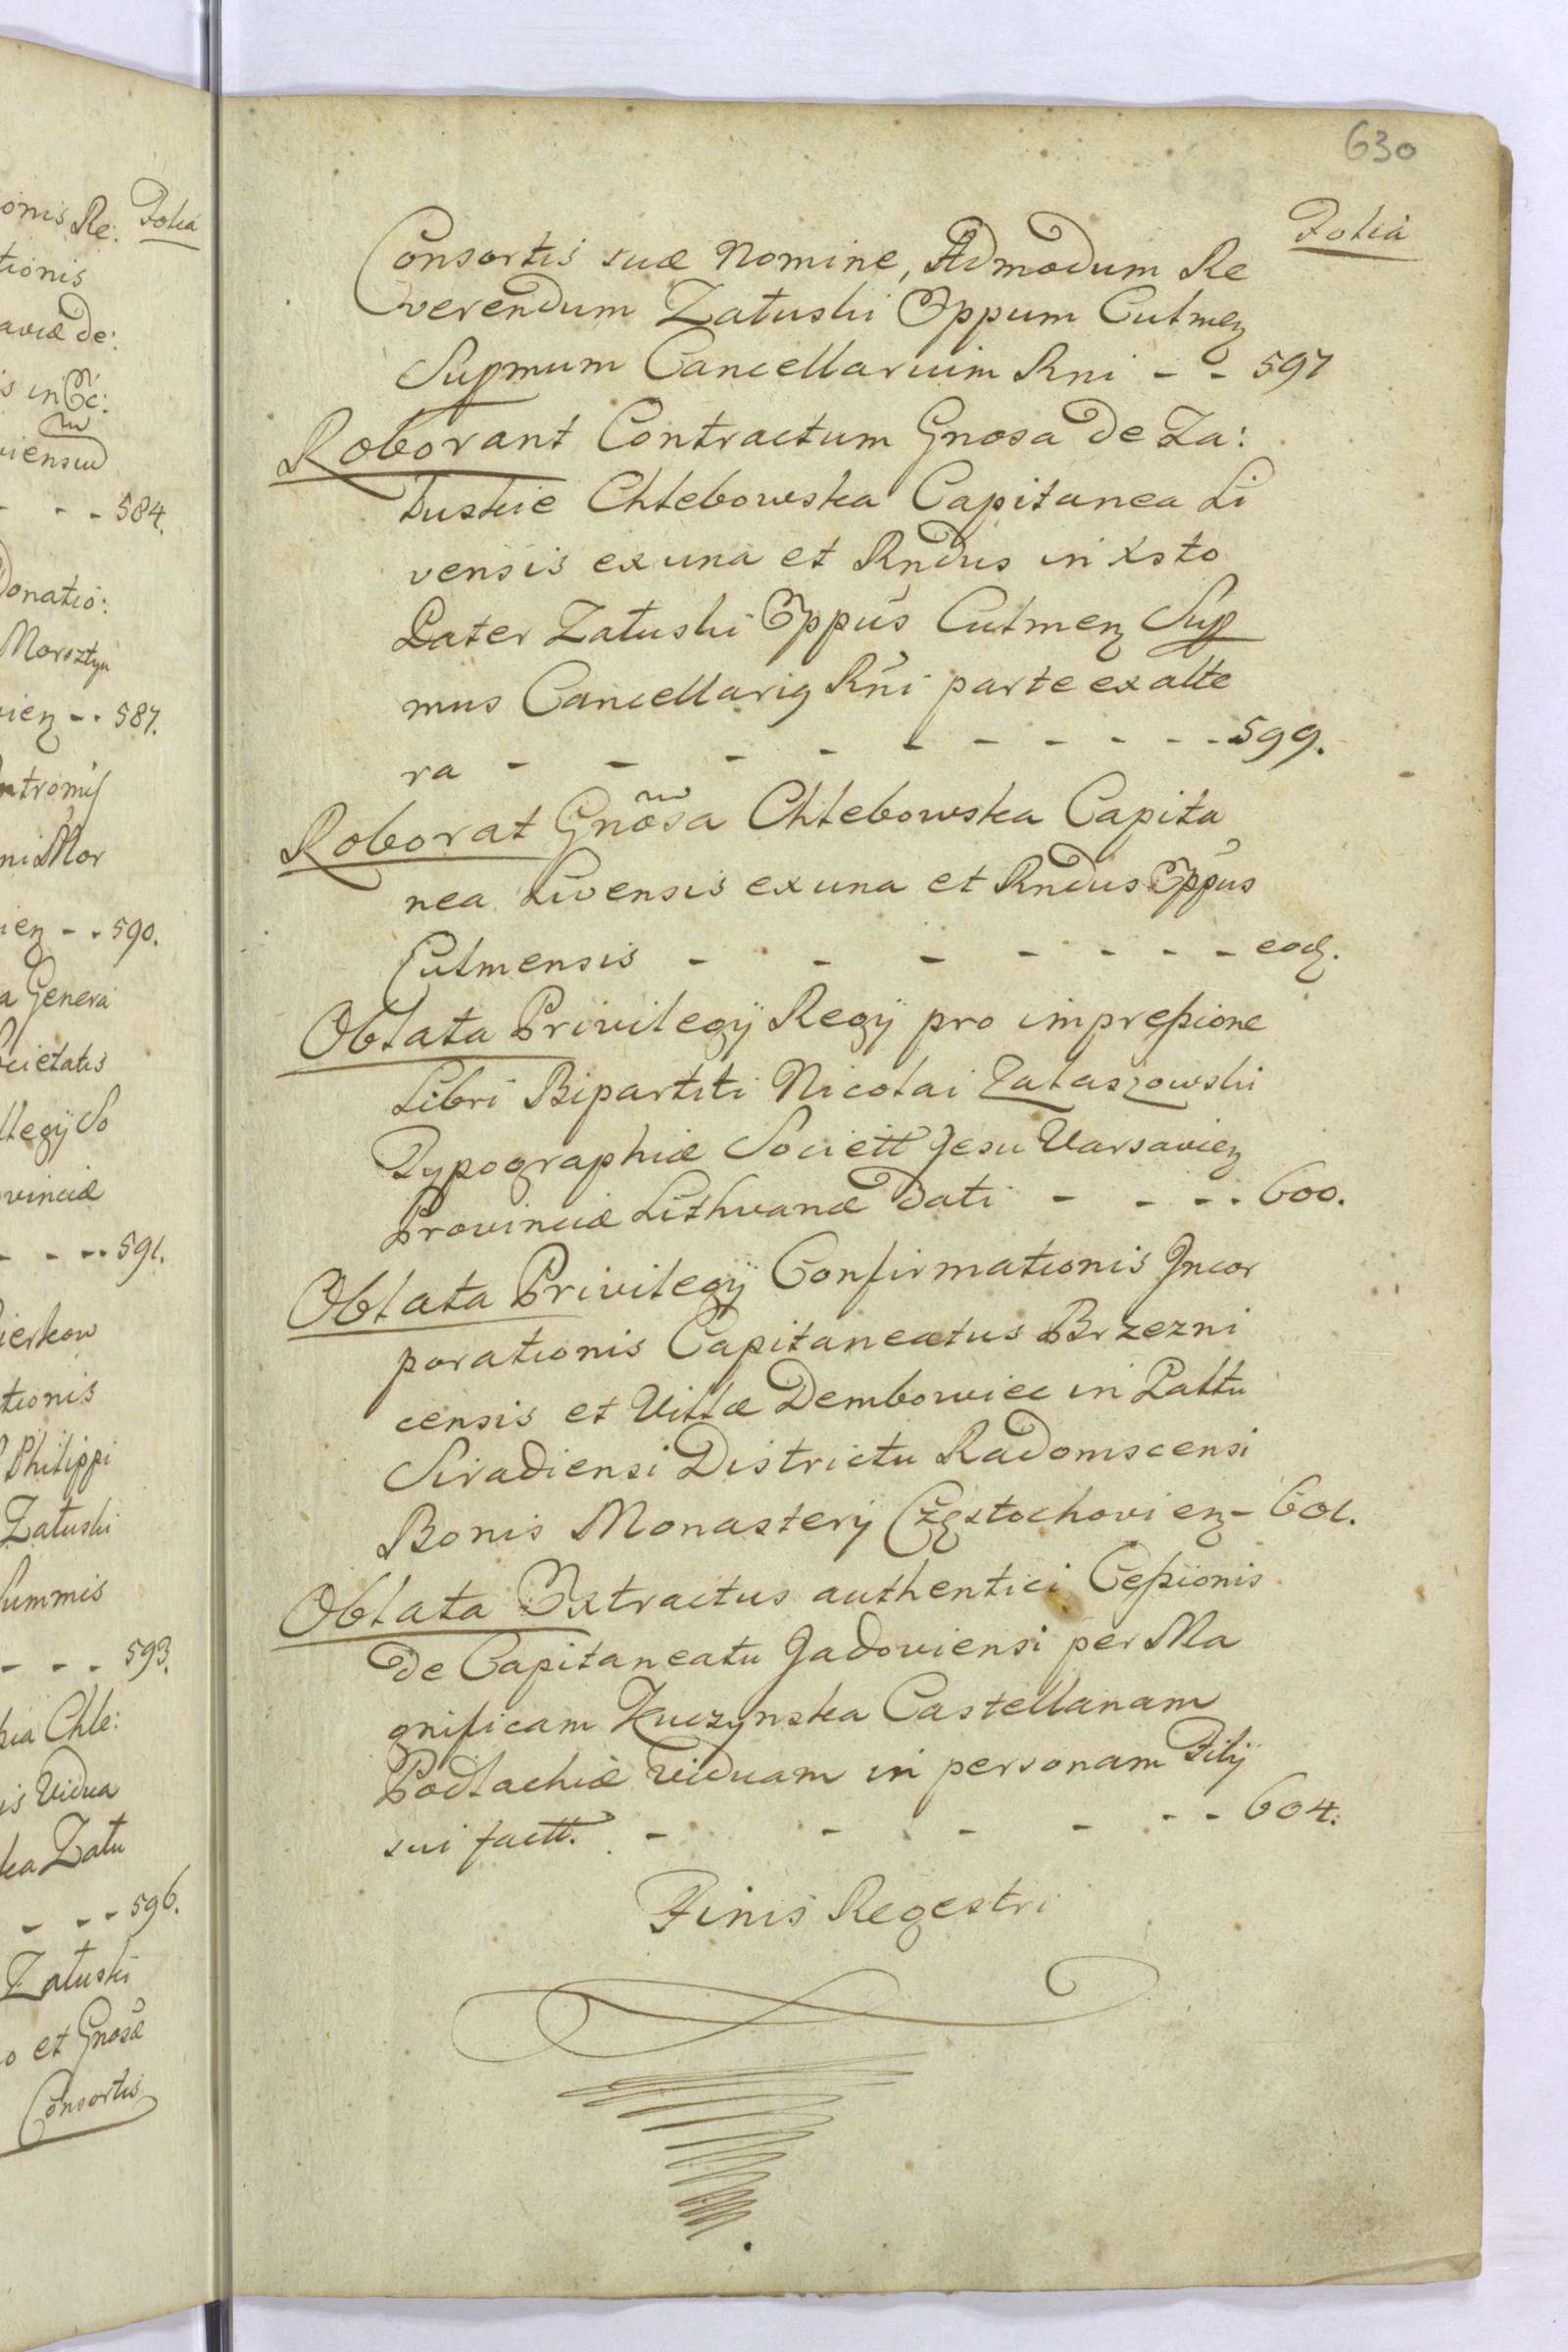 onis Re: Folia
tionis
aviæ de:
is in &c:
viensiu
- - 584.
Donatio:
Morsztyn
vieȝ - - 587.
ntromiſ
ni Mor
ieȝ - - 590.
a Genera
ocietatis
llegÿ So
vinciæ
- - - - 591.
ierkow
tionis
Philippi
Załuski
Summis
- - - 593.
kia Chle:
is Vidua
ka Zału
- - - 596.
Załuski
o et Gnosæ
Consortis
630
Folia
Consortis suæ Nomine, Admodum Re
verendum Załuski Eppum Culmeȝ
Supmum Cancellarium Rni - - 597
Roborant Contractum Gnosa de Za:
łuskie Chlebowska Capitanea Li
vensis ex una et Rndus in Xsto
Pater Załuski Eppus Culmeȝ Sup
mus Cancellariꝯ Rni parte ex alte
ra - - - - - - - - - 599.
Roborat Gnosa Chlebowska Capita
nea Livensis ex una et Rndus Eppus
Culmensis - - - - - - - eodȝ.
Oblata Privilegÿ Regÿ pro impreſsione
Libri Bipartiti Nicolai Zalaszowski
Typographiæ Societt Jesu Varsavieȝ
Provinciæ Lithvanæ dati - - - - 600.
Oblata Privilegÿ Confirmationis Incor
porationis Capitaneatus Brzezni
censis et Villæ Dembowiec in Pallu
Siradiensi Districtu Radomscensi
Bonis Monasterÿ Częstochovieȝ - 601.
Oblata Extractus authentici Ceſsionis
de Capitaneatu Jadoviensi per Ma
gnificam Kuczynska Castellanam
Podlachiæ Viduam in personam Filÿ
sui factt. - - - - - - 604.
Finis Regestri